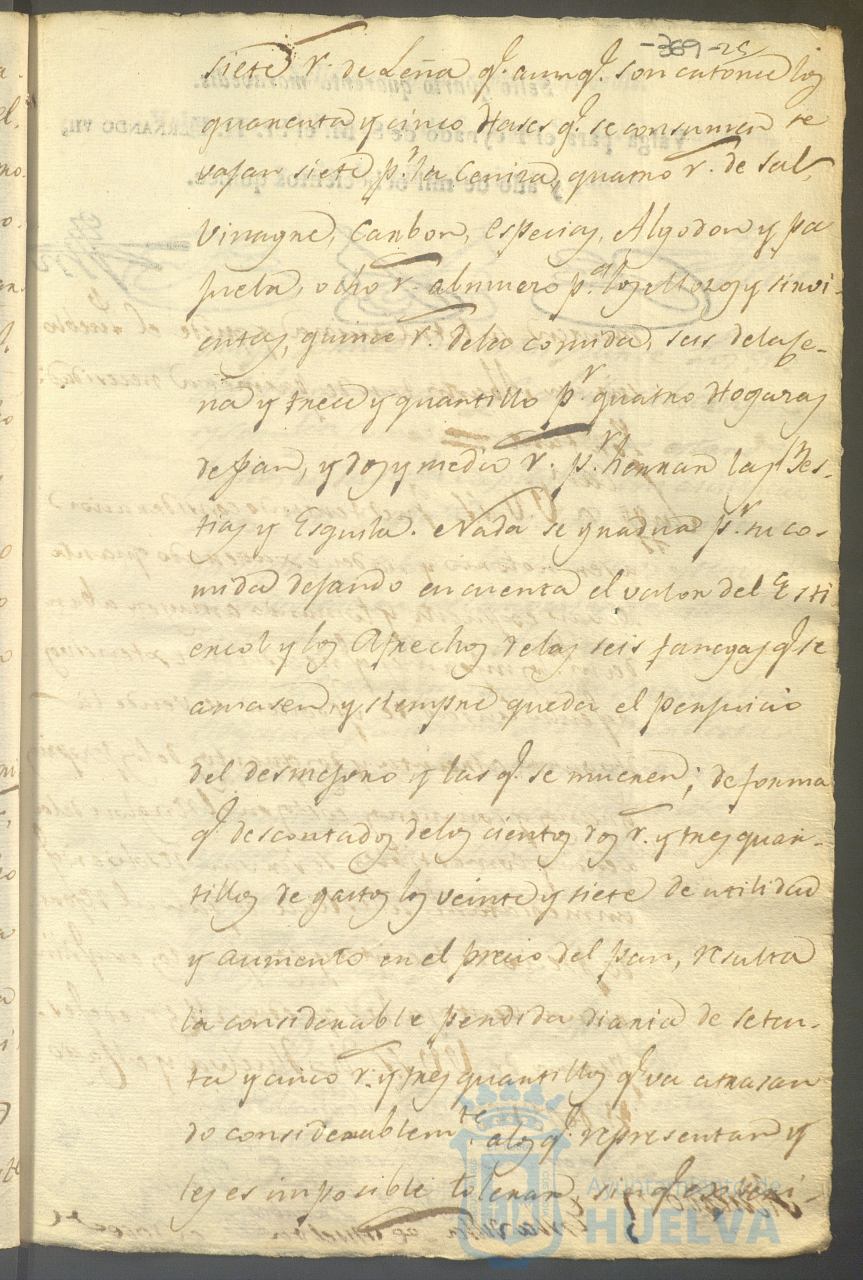 -369-25
siete r.^s de Leña q.^e aunq.^e son catorce los
quarenta y cinco Hases q.^e se consumen se
vajan siete p.^r la Ceniza, quatro r.^s de Sal,
Vinagre, Carbon, Especias, Algodon y pa
juela, ocho r.^s almuerzo p.^a los Mozos y sirvi-
entas, quince r.^s dela comida, seis dela se-
na y trece y quartillo p.^r quatro Hogazas
de pan, y dos y medio r.^s p.^r herrar las Bes-
tias y Esquila. Nada se gradua p.^r su co-
mida dejando en cuenta el valor del Esti
ercol y los Afrechos delas seis fanegas q.^e se
amasen, y siempre queda el perjuicio
del desmejoro y las q.^e se mueren; de forma
q.^e descontados delos cientos dos r.^s y tres quar-
tillos de gastos los veinte y siete de utilidad
y aumento en el precio del pan, resulta
la considerable perdida diaria de seten-
ta y cinco r.^s y tres quartillos q.^e va atrasan
do considerablem.^te alos q.^e representan y
les es imposible tolerar,
Ayuntamiento de
HUELVA